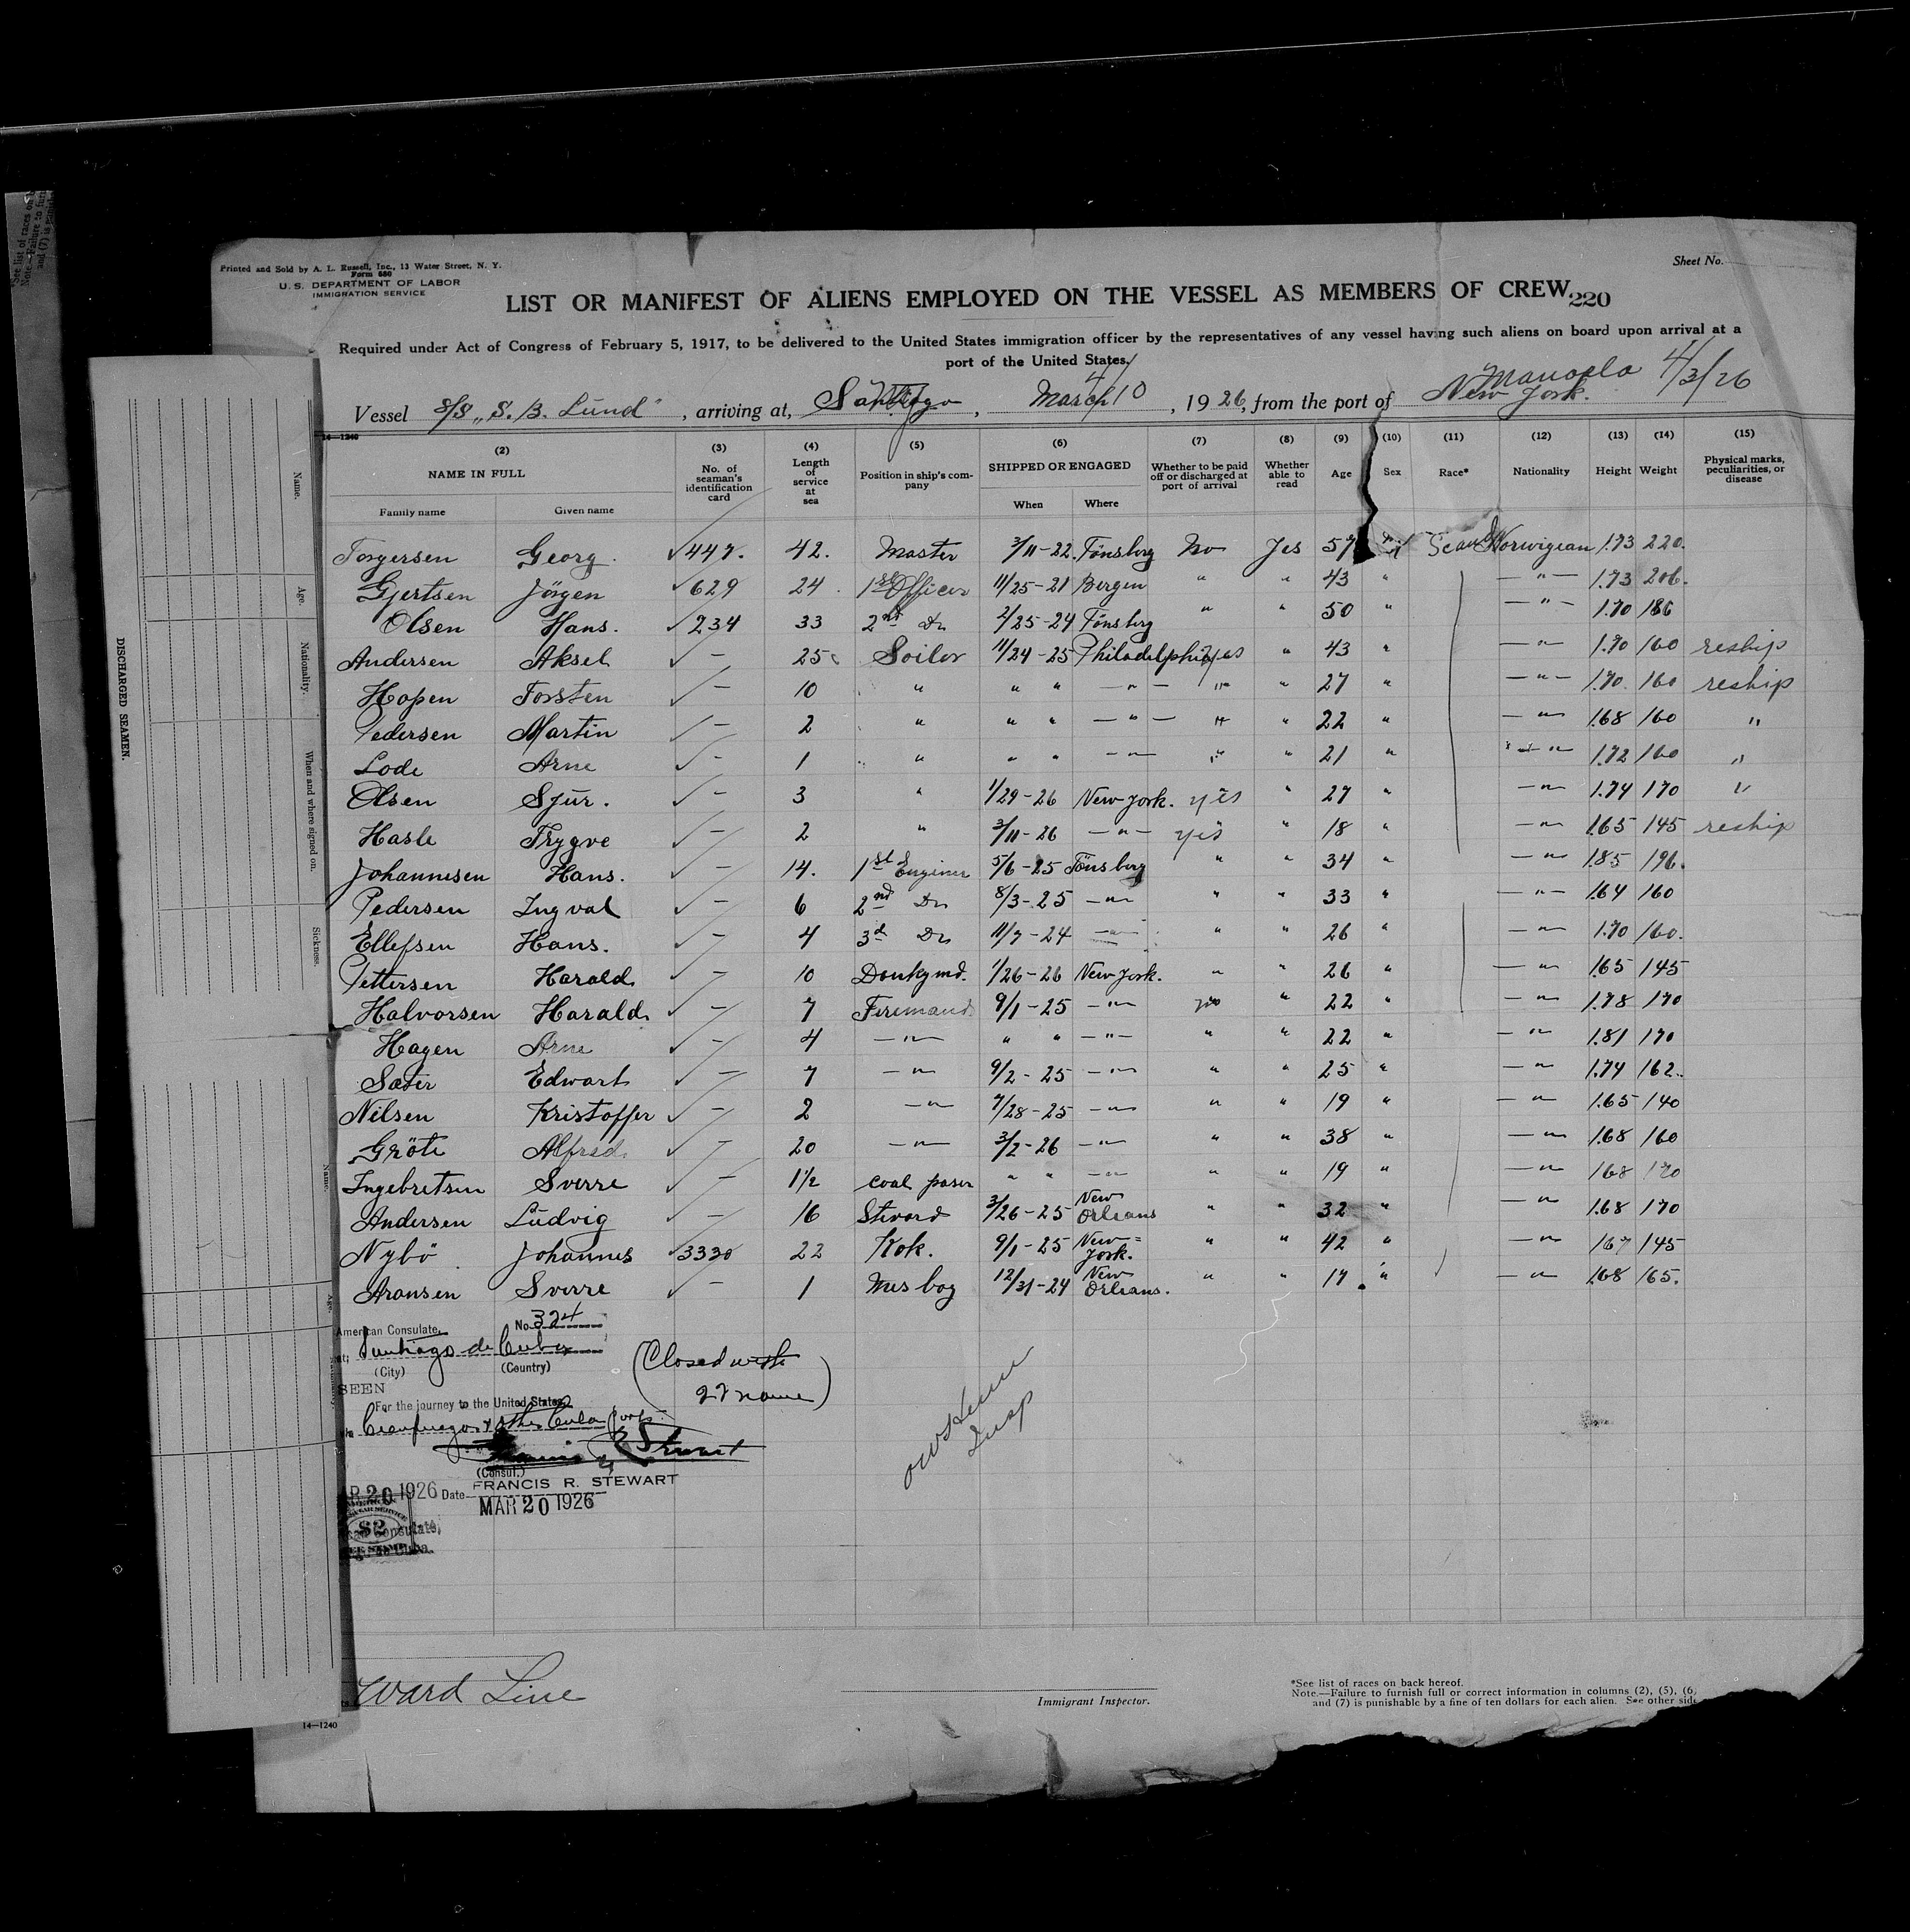 Printed and Sold by A. L. Russell, Inc., 13 Water Street, N. Y.
Form 680
U. S. DEPARTMENT OF LABOR
IMMIGRATION SERVICE
Sheet No.
LIST OR MANIFEST OF ALIENS EMPLOYED ON THE VESSEL AS MEMBERS OF CREW 220
Required under Act of Congress of February 5, 1917, to be delivered to the United States immigration officer by the representatives of any vessel having such aliens on board upon arrival at a
port of the United States.
Manopla 4/3/26
Vessel S/S „S. B. Lund" , arriving at, Santiago , March 10 , 1926, from the port of New York.
14—1240
(2) (3) (4) (5) (6) (7) (8) (9) (10) (11) (12) (13) (14) (15)
NAME IN FULL No. of seaman's identification card Length of service at sea Position in ship's company SHIPPED OR ENGAGED Whether to be paid off or discharged at port of arrival Whether able to read Age Sex Race* Nationality Height Weight Physical marks, peculiarities, or disease
Family name Given name When Where
Torgersen Georg. ✓447. 42. Master 3/11-22. Tönsberg No Yes 57 Scand Norwigean 1.73 220.
Gjertsen Jörgen ✓629 24. 1st Officer 11/25-21 Bergen " " 43 " —"— 1.73 206.
Olsen Hans. ✓234 33 2nd Do 2/25-24 Tönsberg " " 50 " —"— 1.70 186
Andersen Aksel ✓ — 25 Soilor 11/24-25 Philadelphia yes " 43 " —"— 1.70 160 reship
Hopen Torsten ✓ — 10 " " " —"— " " 27 " —"— 1.70 160 reship
Pedersen Martin ✓ — 2 " " " —"— " " 22 " —"— 1.68 160 "
Lode Arne ✓ — 1 " " " —"— " " 21 " —"— 1.72 160 "
Olsen Sjur. ✓ — 3 " 1/29-26 New York. yes " 27 " —"— 1.74 170 "
Hasle Trygve ✓ — 2 " 3/11-26 —"— yes " 18 " —"— 1.65 145 reship
Johannesen Hans. ✓ — 14. 1st Enginer 5/6-25 Tönsberg " " 34 " —"— 1.85 196.
Pedersen Ingval ✓ — 6 2nd Do 8/3-25 —"— " " 33 " —"— 1.64 160
Ellefsen Hans. ✓ — 4 3d Do 11/7-24 —"— " " 26 " —"— 1.70 160.
Pettersen Harald ✓ — 10 Donkymd. 1/26-26 New York. " " 26 " —"— 1.65 145
Halvorsen Harald ✓ — 7 Firemand 9/1-25 —"— " 22 " —"— 1.78 170
Hagen Arne ✓ — 4 —"— " " —"— " " 22 " —"— 1.81 170
Sæter Edwart ✓ — 7 —"— 9/2-25 —"— " " 25 " —"— 1.74 162.
Nilsen Kristoffer ✓ — 2 —"— 7/28-25 —"— " " 19 " —"— 1.65 140
Gröte Alfred. ✓ — 20 —"— 3/2-26 —"— " " 38 " —"— 1.68 160
Ingebretsen Sverre ✓ — 1½ coal paser " " —"— " " 19 " —"— 168 170
Andersen Ludvig ✓ — 16 Stevard 3/26-25 New Orleans " " 32 " —"— 1.68 170
Nybö Johannes ✓3330 22 Kok. 9/1-25 New York. " " 42 " —"— 167 145
Aronsen Sverre ✓ — 1 Mes boy 12/31-24 New Orleans. " " 17 " —"— 168 165.
American Consulate, No. 324
at; Santiago de Cuba
(City) (Country)
SEEN
(Closed with
22 name)
For the journey to the United States
via Cienfuegos & other Cuba ports.
Francis R Stewart
(Consul.)
FRANCIS R. STEWART
R 20 1926 Date MAR 20 1926
$2
Consulate,
Cuba.
Insp
Ward Line
Immigrant Inspector.
*See list of races on back hereof.
Note.—Failure to furnish full or correct information in columns (2), (5), (6)
and (7) is punishable by a fine of ten dollars for each alien. See other side
14—1240
DISCHARGED SEAMEN.
Name.
Age.
Nationality.
When and where signed on.
Sickness.
Name.
Age.
*See list of races on
Note.—Failure to fur
and (7) is